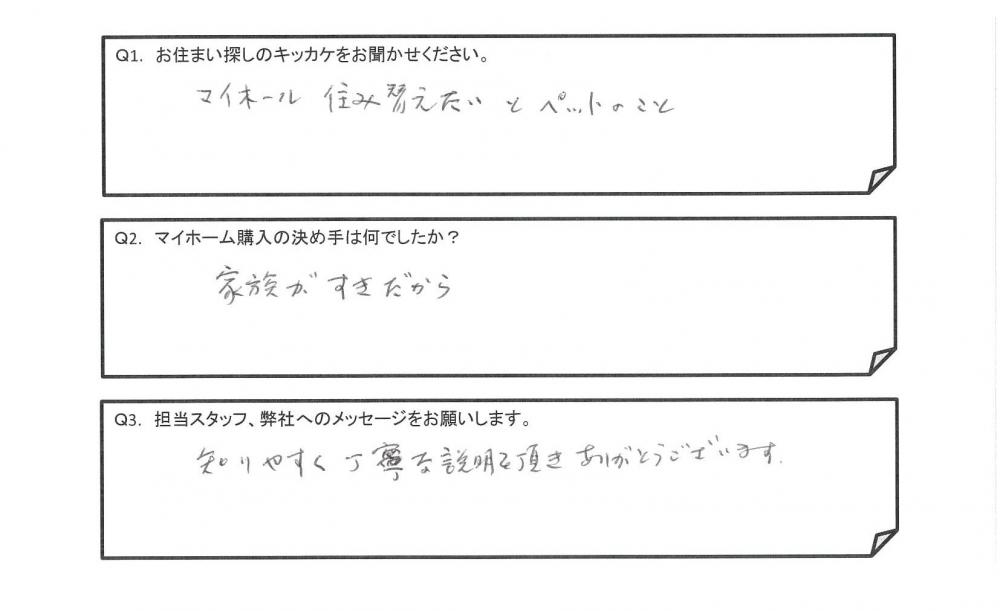 Q1. お住まい探しのキッカケをお聞かせください。
マイホール 住み替えたい と ペットのこと
Q2. マイホーム購入の決め手は何でしたか？
家族がすきだから
Q3. 担当スタッフ、弊社へのメッセージをお願いします。
知りやすく丁寧な説明を頂きありがとうございます.